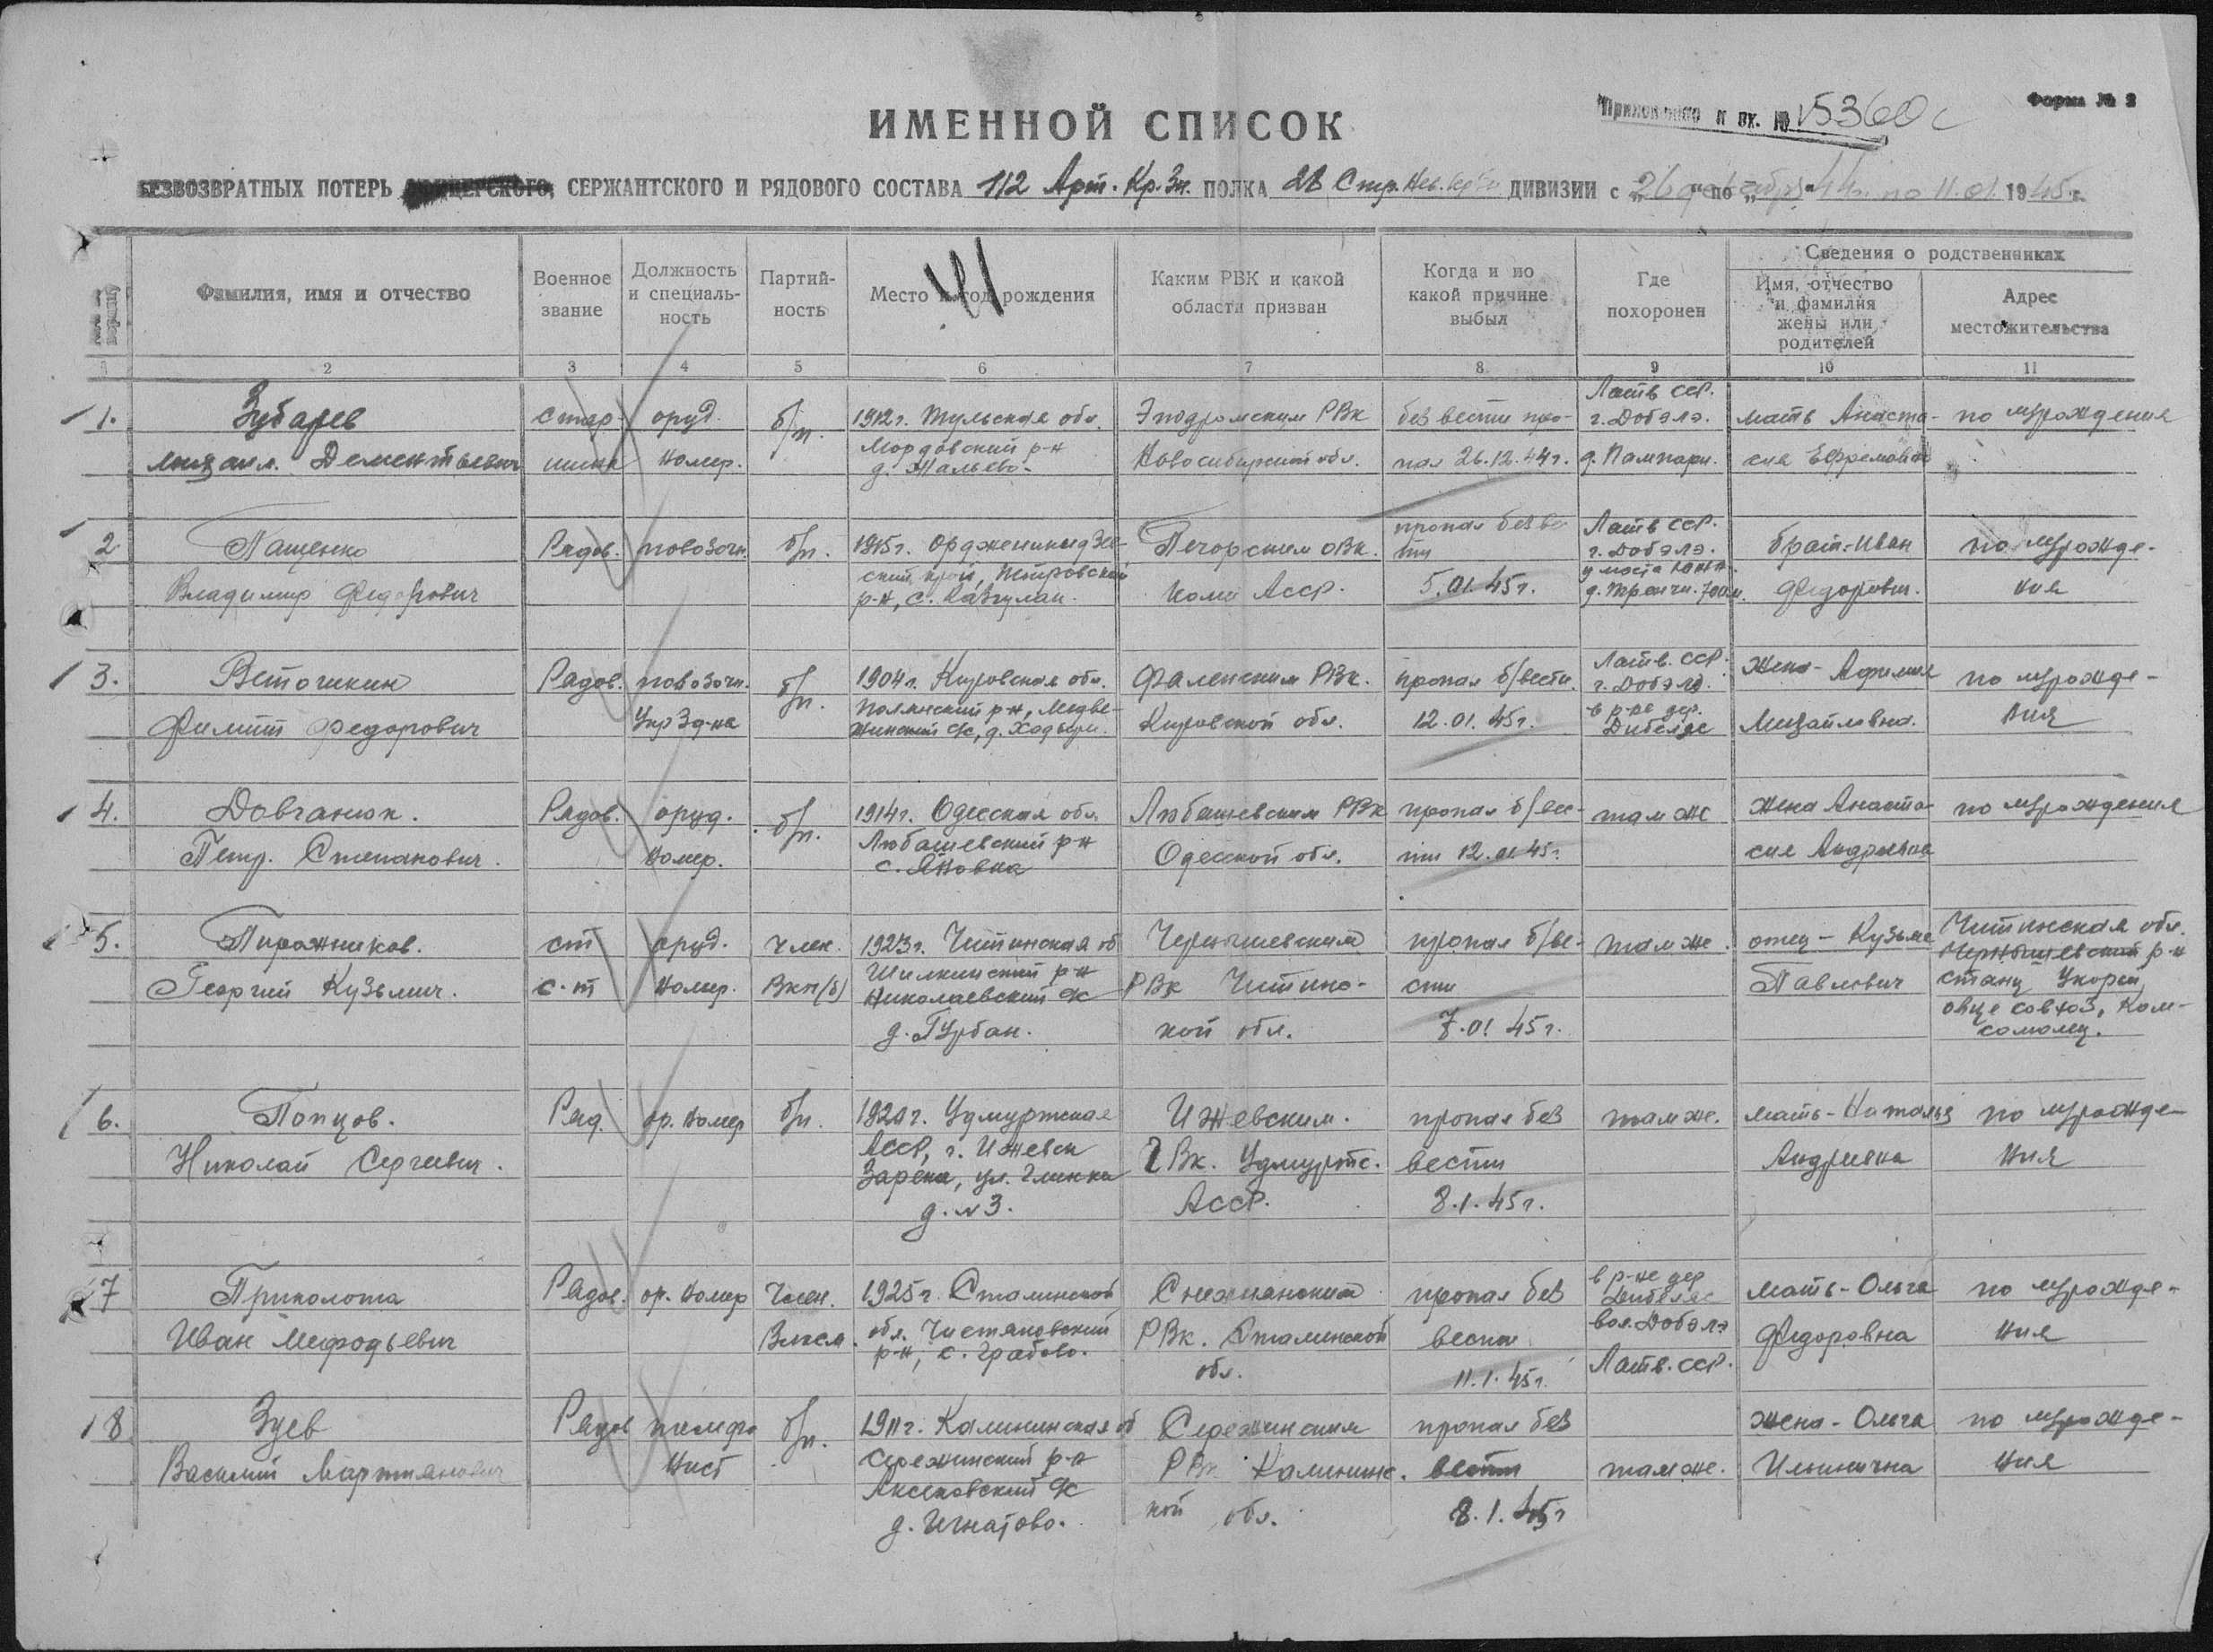 Форма № 2
Приложение к вх. № 15360с
ИМЕННОЙ СПИСОК
БЕЗВОЗВРАТНЫХ ПОТЕРЬ СЕРЖАНТСКОГО И РЯДОВОГО СОСТАВА 112 Арт. Кр. Зн. ПОЛКА 28 Стр. Нев. ДИВИЗИИ с „26 по 44г. по 11.01 1945 г.
Фамилия, имя и отчество
Военное звание
Должность и специальность
Партийность
Место и год рождения
Каким РВК и какой области призван
Когда и по какой причине выбыл
Где похоронен
Сведения о родственниках
Имя, отчество и фамилия жены или родителей
Адрес местожительства
2 3 4 5 6 7 8 9 10 11
1. Зубарев
Михаил. Дементьевич
стар-
шина
оруд.
номер.
б/п.
1912г. Тульская обл.
Мордовский р-н
РВк
Новосибирской обл.
без вести про-
пал 26.12.44г.
Латв ССР.
г. Добэлэ.
мать Анаста-
сия Ефремовна
по м/рождения
2 Пащенко
Владимир Федорович
Рядов.
повозочн.
б/п.
1915г. Орджоникидзев-
ский край, Петровский
р-н, с. Казгулак.
Печорским оВк.
Коми Асср.
пропал без ве
сти
5.01.45г.
Латв ССР.
г. Добэлэ.
брат-Иван
Федорович.
по м/рожде-
ния
3. Ветошкин
Филипп Федорович
Рядов.
повозочн.
б/п.
1904г. Кировская обл.
Фаленским РВк.
Кировской обл.
пропал б/вести.
12.01.45г.
Латв. ССР.
г. Добэлэ.
в р-не дер.
жена-
Михайловна.
по м/рожде-
ния
4. Довганюк.
Петр. Степанович.
Рядов.
оруд.
номер.
б/п.
1914г. Одесская обл.
Любашевский р-н
с. Яновка
Любашевским РВк
Одесской обл.
пропал б/вес-
ти 12.01.45г.
там же
жена Анаста-
сия Андреевна
по м/рождения
5. Пирожников.
Георгий Кузьмич.
ст
с-т
оруд.
номер.
член.
Вкп(б)
1923г. Читинская об
Шилкинский р-н
Николаевский с/с
д. Гурбан.
Чернышевским
РВк Читинс-
кой обл.
пропал б/ве-
сти
7.01.45г.
там же.
отец- Кузьма
Павлович
Читинская обл.
Чернышевский р-н
станц Укорей
овце совхоз, Ком-
сомолец.
6. Попцов.
Николай Сергеевич.
Ряд.
ор. номер
б/п.
Удмуртская
АССР, г. Ижевск
Зарека, ул. Глинки
д. №3.
Ижевским.
ГВк. Удмуртс.
АССР.
пропал без
вести
8.1.45г.
там же.
мать- Наталья
Андреевна
по м/рожде-
ния
7 Приколота
Иван Мефодьевич
Рядов.
ор. номер
Член.
Влксм.
1925г. Сталинской
обл. Чистяковский
р-н, с. Грабово.
Снежнянский
РВк. Сталинской
обл.
пропал без
вести
11.1.45г.
в р-не дер
вол. Добэлэ
Латв. ССР.
мать- Ольга
Федоровна
по м/рожде-
ния
8 Зуев
Василий Мартьянович
Рядов
телефо
нист
б/п.
1911г. Калининская об
Сережинский р-н
Аксеновский с/с
д. Игнатово.
Сережинским
РВк Калининс.
кой обл.
пропал без
вести
8.1.45г
там же.
жена- Ольга
Ильинична
по м/рожде-
ния